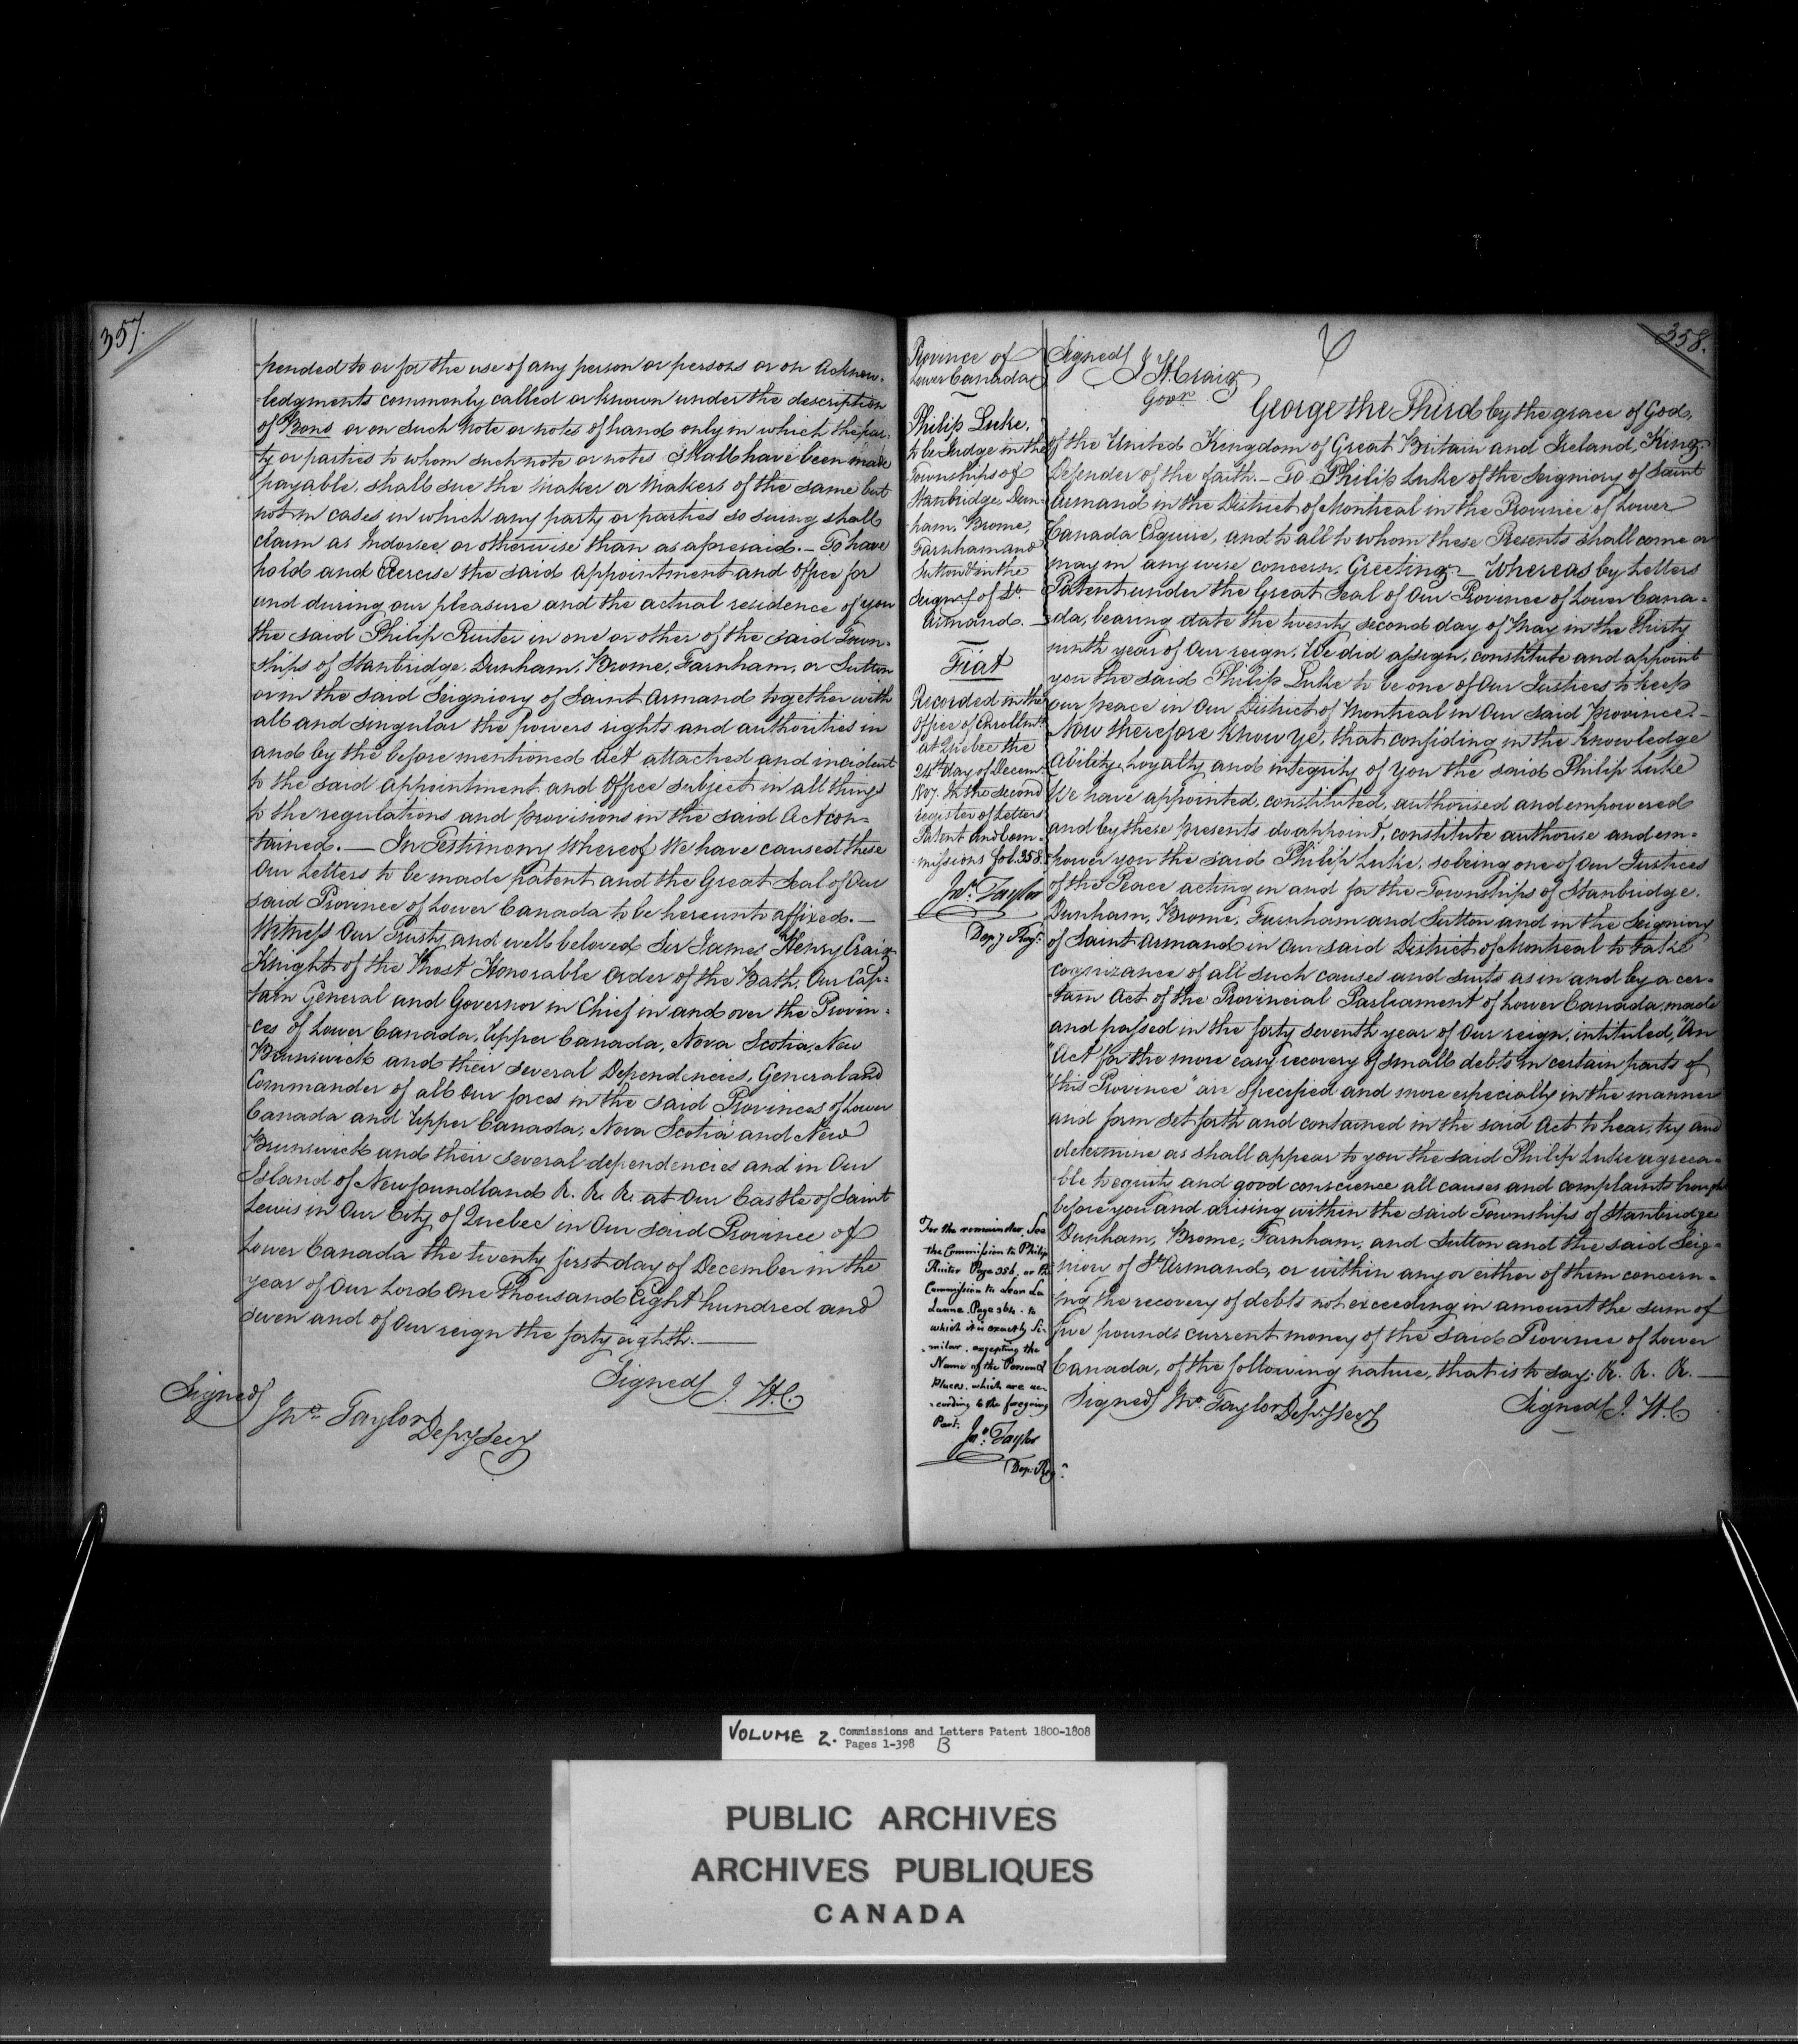 357.
pended to or for the use of any person or persons or on Acknow-
-ledgments commonly called or known under the description
of Bons or on such note or notes of hand only in which the par-
ty or parties to whom such note or notes shall have been made
payable, shall sue the Maker or Makers of the same but
not in cases in which any party or parties so suing shall
claim as Indorsee or otherwise than as aforesaid. — To have
hold and Exercise the said appointment and Office for
and during our pleasure and the actual residence of you
the said Philip Ruiter in one or other of the said Town-
ships of Stanbridge, Dunham, Brome, Farnham, or Sutton
or in the said Seigniory of Saint Armand together with
all and singular the powers rights and authorities in
and by the before mentioned Act attached and incident
to the said appointment and Office subject in all things
to the regulations and provisions in the said Act con-
-tained. — In Testimony Whereof We have caused these
Our Letters to be made patent and the Great Seal of Our
said Province of Lower Canada to be hereunto affixed. —
Witness Our Trusty and well beloved Sir James Henry Craig
Knight of the Most Honorable Order of the Bath, Our Cap-
-tain General and Governor in Chief in and over the Provin-
-ces of Lower Canada, Upper Canada, Nova Scotia, New
Brunswick and their several Dependencies, General and
Commander of all Our forces in the said Provinces of Lower
Canada and Upper Canada, Nova Scotia and New
Brunswick and their several dependencies and in Our
Island of Newfoundland &. &. &. at Our Castle of Saint
Lewis in Our City of Quebec in Our said Province of
Lower Canada the twenty first day of December in the
year of Our Lord One Thousand Eight hundred and
seven and of Our reign the forty eighth. —
Signed J. H. C
Signed Jno. Taylor Depy. Secy
358.
Province of
Lower Canada
Philip Luke,
to be Judge in the
Townships of
Stanbridge, Dun-
-ham, Brome,
Farnham and
Sutton & in the
Seigny. of St.
Armand.
Fiat
Recorded in the
Office of Enrollmts.
at Quebec the
24th day of Decem.
1807. In the second
register of Letters
Patent and Com-
-missions fol. 358.
Jno. Taylor
Depy Regr.
For the remainder, See
the Commission to Philip
Ruiter Page 356. or the
Commission to
Page 364. to
which it is exactly Si-
-milar. excepting the
Name of the Person &
Places. which are ac-
-cording to the foregoing
Part.
Jno. Taylor
Dep: Reg:
Signed J H Craig
Govr.
George the Third by the grace of God,
of the United Kingdom of Great Britain and Ireland, King,
Defender of the faith. — To Philip Luke of the Seigniory of Saint
Armand in the District of Montreal in the Province of Lower
Canada Esquire, and to all to whom these Presents shall come or
may in any wise concern. Greeting — Whereas by Letters
Patent under the Great Seal of Our Province of Lower Cana-
-da, bearing date the twenty second day of May in the Thirty
ninth year of Our reign, We did assign, constitute and appoint
you the said Philip Luke to be one of Our Justices to keep
our peace in Our District of Montreal in Our said Province. —
Now therefore Know Ye, that confiding in the Knowledge
Ability, Loyalty and integrity of You the said Philip Luke
We have appointed, constituted, authorised and empowered
and by these presents do appoint, constitute authorise and em-
-power you the said Philip Luke, so being one of Our Justices
of the Peace acting in and for the Townships of Stanbridge,
Dunham, Brome, Farnham and Sutton and in the Seigniory
of Saint Armand in Our said District of Montreal to take
cognizance of all such causes and suits as in and by a cer-
-tain Act of the Provincial Parliament of Lower Canada, made
and passed in the forty seventh year of Our reign, intituled, "An
"Act for the more easy recovery of small debts in certain parts of
"this Province" are specified and more especially in the manner
and form set forth and contained in the said Act to hear, try and
determine as shall appear to you the said Philip Luke agreea-
-ble to equity and good conscience all causes and complaints brought
before you and arising within the said Townships of Stanbridge
Dunham, Brome, Farnham, and Sutton and the said Seig-
niory of St. Armand, or within any or either of them concern-
ing the recovery of debts not exceeding in amount the sum of
five pounds current money of the said Province of Lower
Canada, of the following nature, that is to say: &. &. &. —
Signed Jno. Taylor Depy. Secy
Signed J. H. C
VOLUME 2. Commissions and Letters Patent 1800-1808
Pages 1-398 B
PUBLIC ARCHIVES
ARCHIVES PUBLIQUES
CANADA